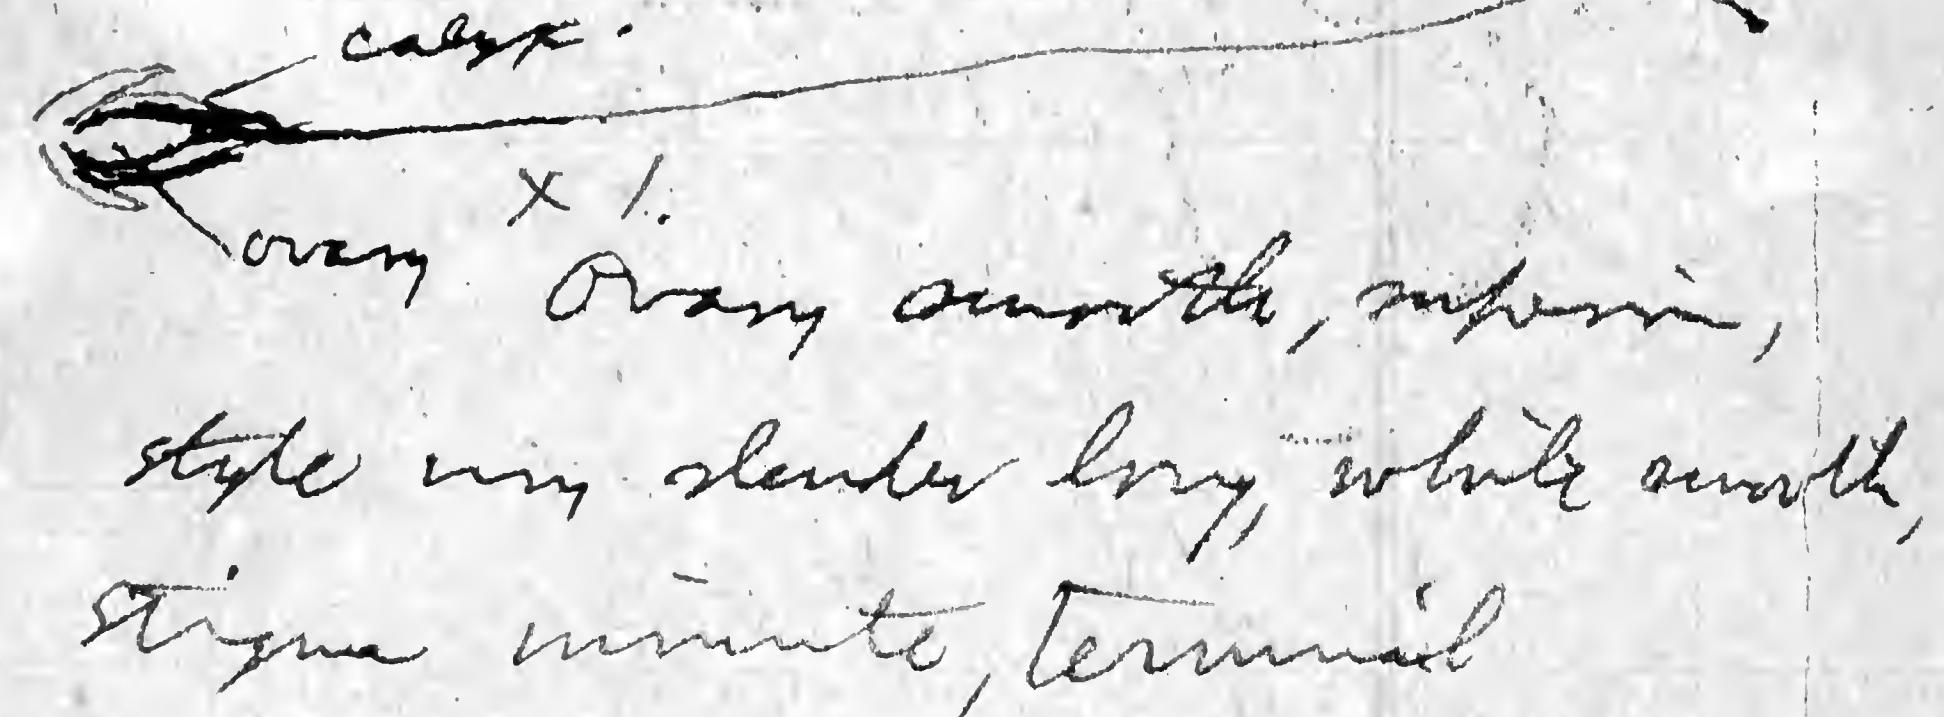 calyx.
x 1.
ovary
Ovary smooth, superior,
style very slender long, white smooth,
stigma minute, terminal